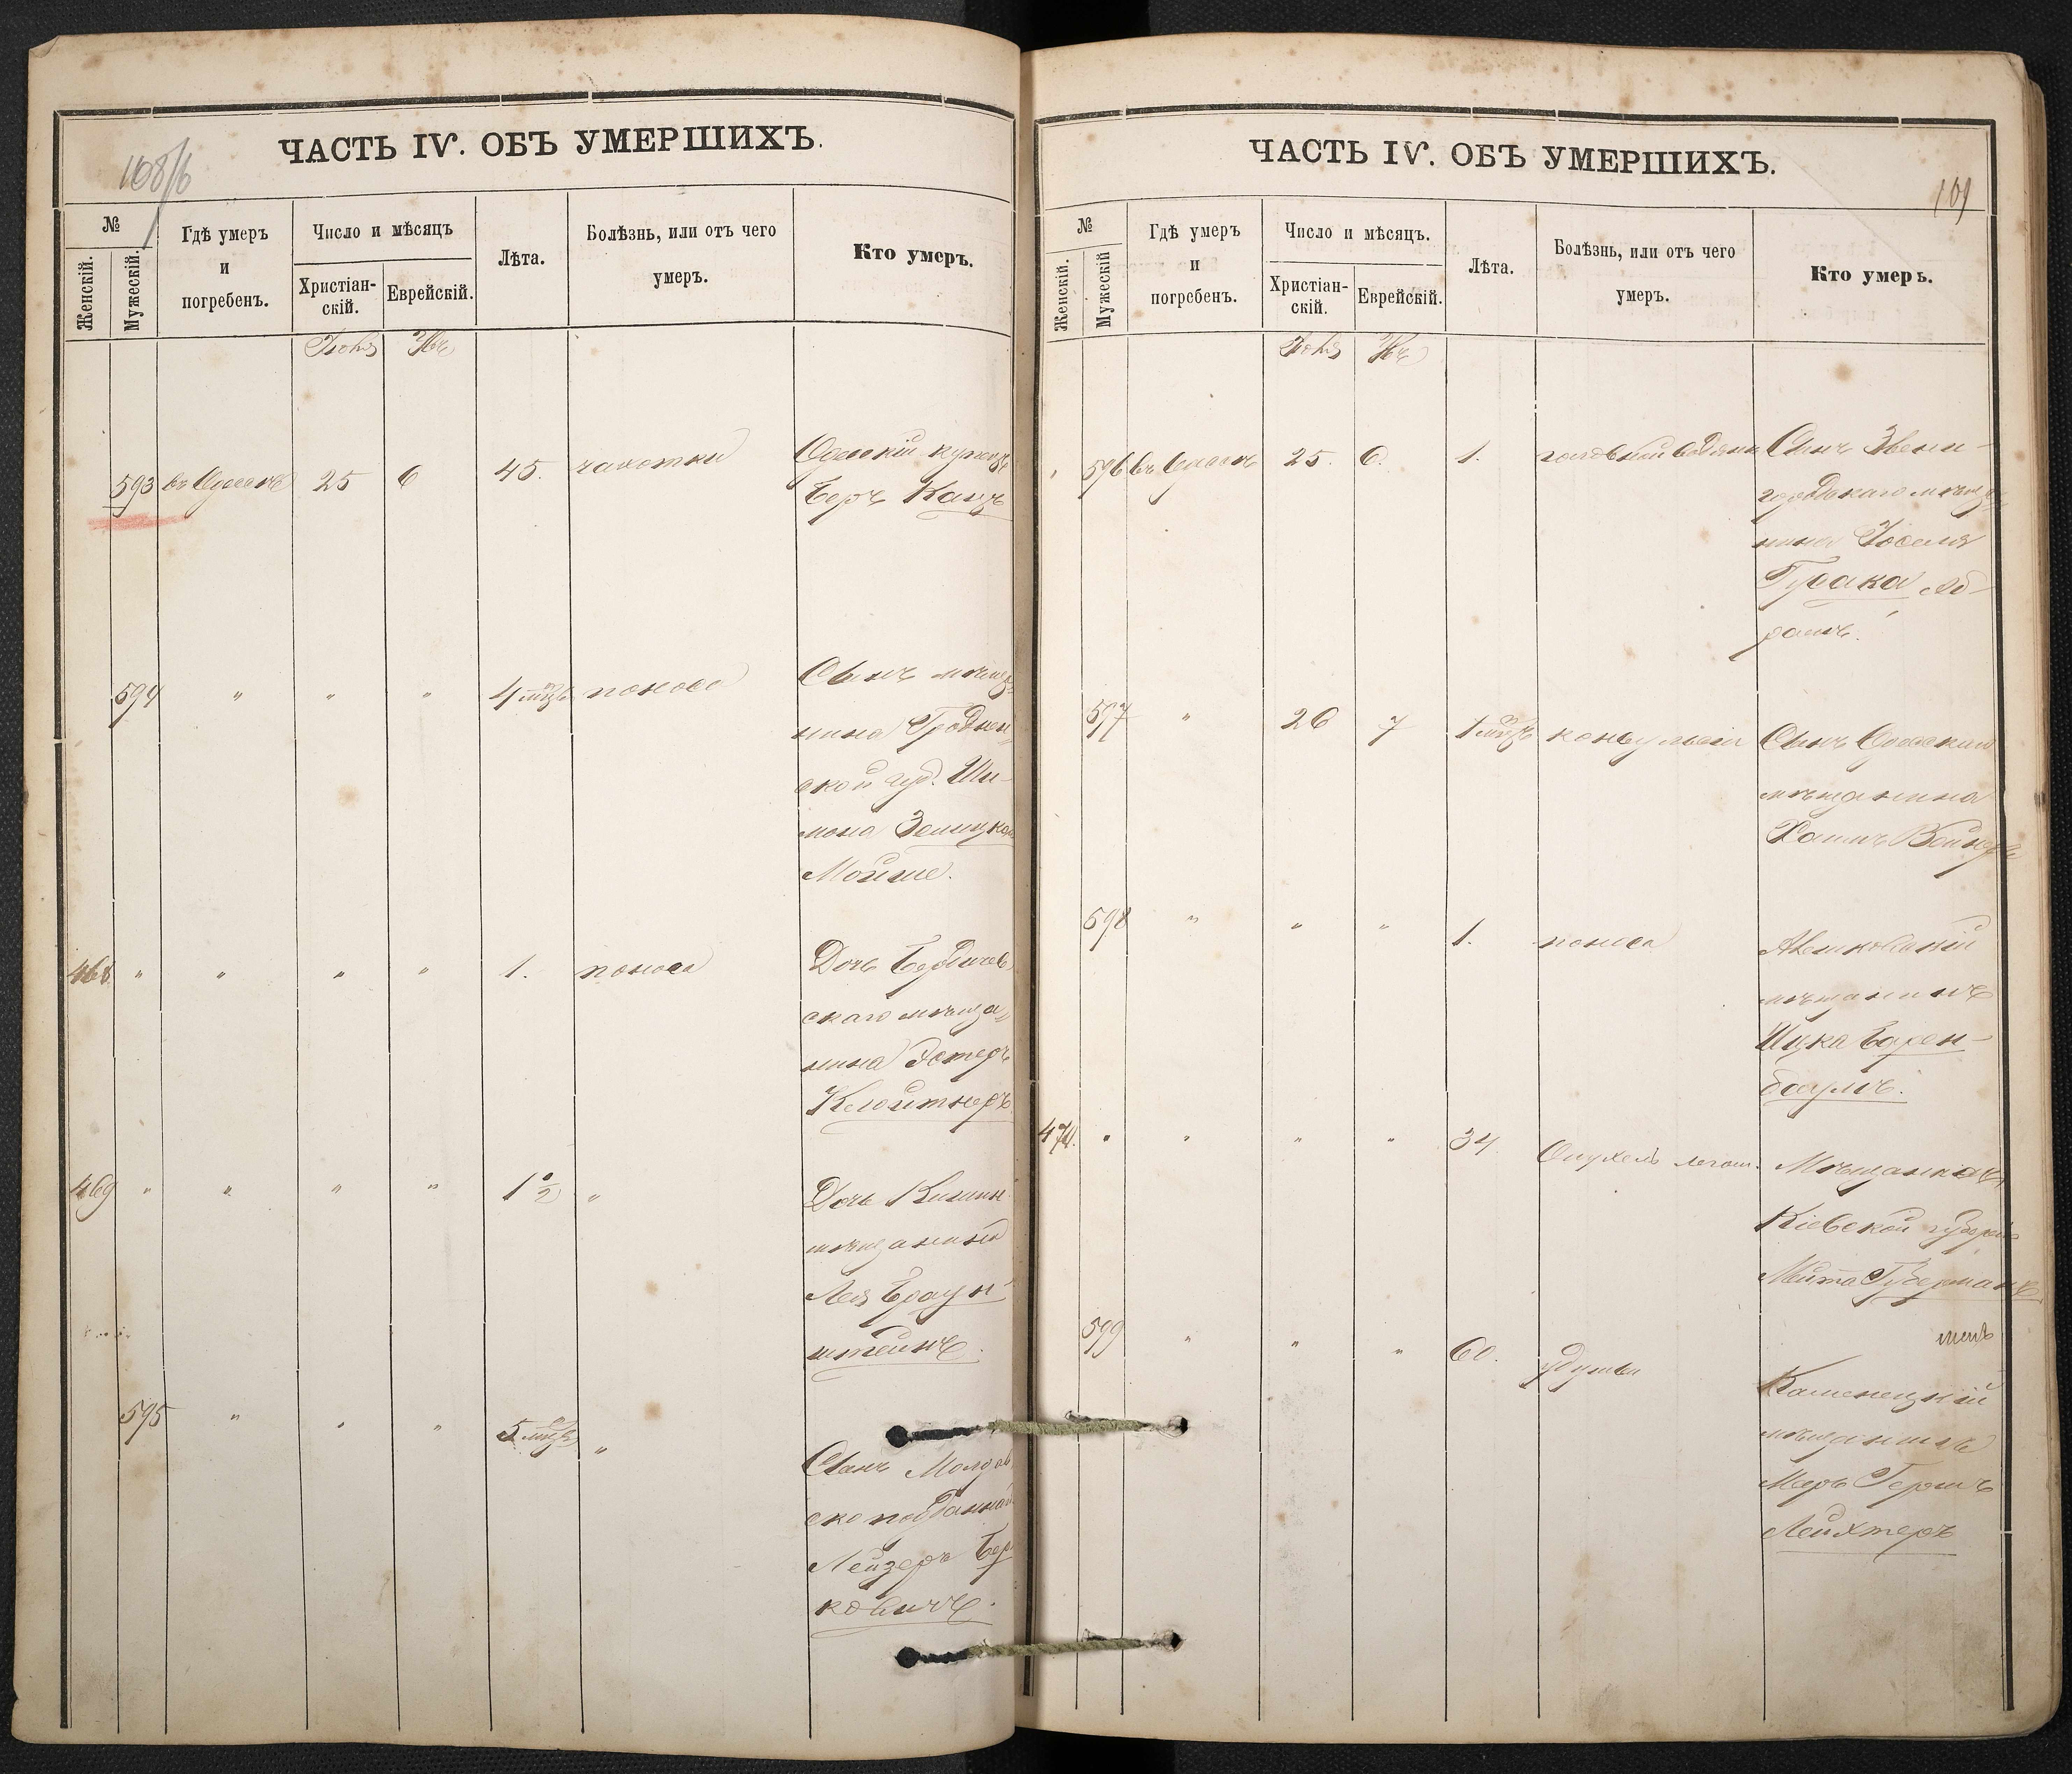 108/б
ЧАСТЬ IV. ОБЪ УМЕРШИХЪ.
№
Женскій.
Мужескій.
Гдѣ умеръ
и
погребенъ.
Число и мѣсяцъ
Христіан-
скій.
Еврейскій.
Лѣта.
Болѣзнь, или отъ чего
умеръ.
Кто умеръ.
593 въ Одессѣ 25 6 45. чахотки Одесскій купецъ
Беръ Канцъ
594 " " " 4 мѣс. поноса Сынъ мѣща-
нина Гроднен-
ской губ. Ши-
мона
Мойше.
468 " " " " 1. поноса Дочь Бердичев
скаго мѣща-
нина Эстеръ
Клойтнеръ
469 " " " " 1 1/2 " Дочь Кишин.
мѣщанина
Лея Браун
штейнъ.
595 " " " 5 мѣс. " Сынъ Молдав
Лейзеръ Бер
ковичъ.
ЧАСТЬ IV. ОБЪ УМЕРШИХЪ.
109
№
Женскій.
Мужескій
Гдѣ умеръ
и
погребенъ.
Число и мѣсяцъ.
Христіан-
скій.
Еврейскій.
Лѣта.
Болѣзнь, или отъ чего
умеръ.
Кто умеръ.
596 въ Одессѣ 25. 6. 1. головной водянки Сынъ Звени-
городскаго мѣща-
нина Іоселя
Гурака Аб-
рамъ.
597 " 26 7 1 мѣс. конвульсіи Сынъ Одесскаго
мѣщанина
Хаимъ
598 " " " 1. поноса
мѣщанинъ
Ицка Барен-
баумъ.
470. " " " " 34 Опухоль легк. Мѣщанка
Кіевской губерніи
Меита Губерманъ
599 " " " 60. удушья
Каменецкій
мѣщанинъ
Меръ Гершъ
Лейхтеръ